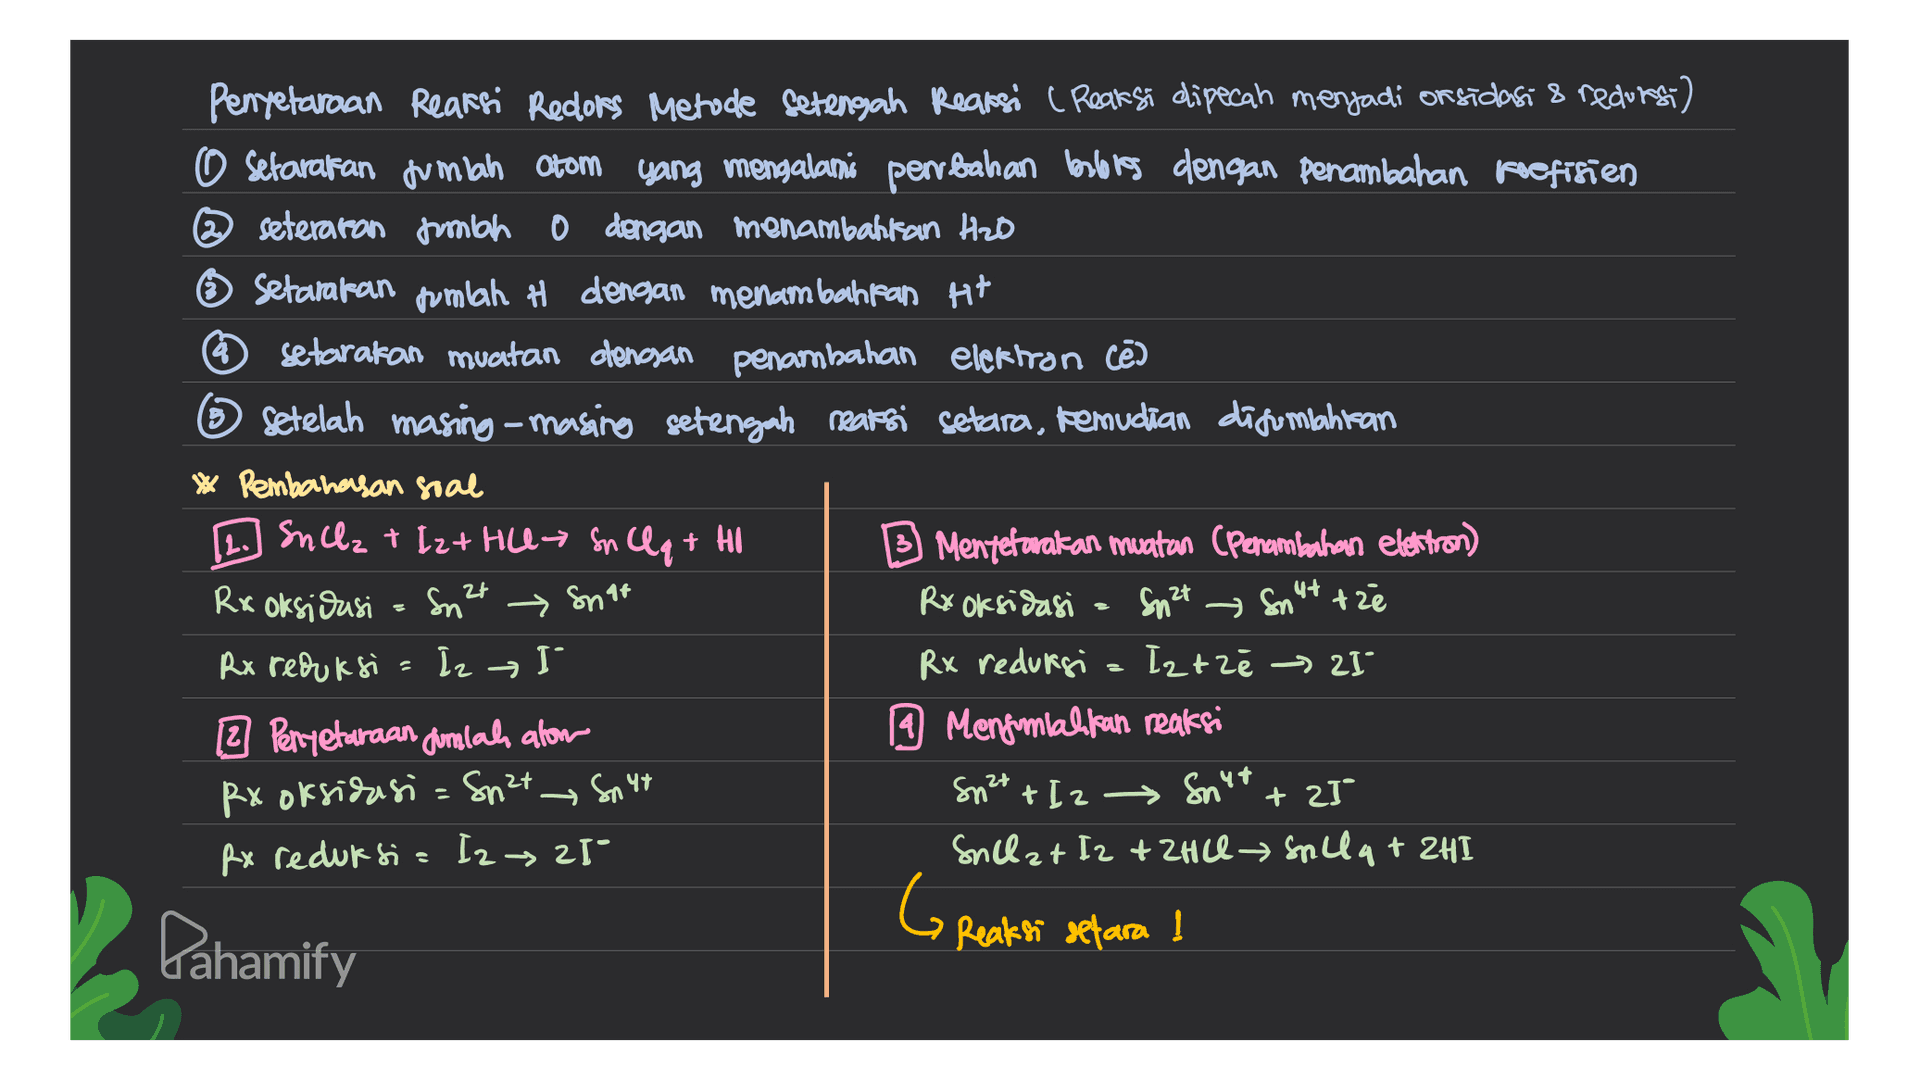 Penyetaraan Reaksi Redoks Metode Setengah Reaksi (Reaksi dipecah menjadi oksidasi & reduksi)
① Setarakan jumlah atom yang mengalami perubahan biloks dengan penambahan koefisien
② setarakan jumlah O dengan menambahkan H₂O
③ Setarakan jumlah H dengan menambahkan H⁺
④ setarakan muatan dengan penambahan elektron (ē)
⑤ Setelah masing-masing setengah reaksi setara, kemudian dijumlahkan
* Pembahasan soal
1. SnCl₂ + I₂ + HCl → SnCl₄ + HI
Rx oksidasi = Sn²⁺ → Sn⁴⁺
Rx reduksi = I₂ → I⁻
2 Penyetaraan jumlah atom
Rx oksidasi = Sn²⁺ → Sn⁴⁺
Rx reduksi = I₂ → 2I⁻
3 Menyetarakan muatan (Penambahan elektron)
Rx oksidasi = Sn²⁺ → Sn⁴⁺ + 2ē
Rx reduksi = I₂ + 2ē → 2I⁻
4 Menjumlahkan reaksi
Sn²⁺ + I₂ → Sn⁴⁺ + 2I⁻
SnCl₂ + I₂ + 2HCl → SnCl₄ + 2HI
Reaksi setara !
Pahamify